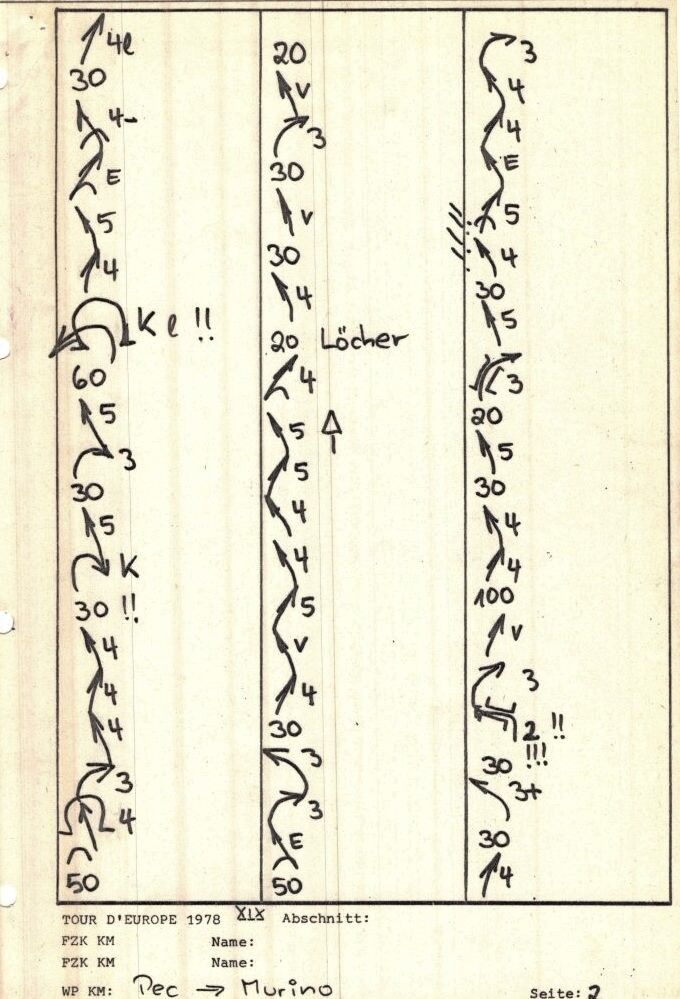 4e
30
4-
E
5
4
K e !!
60
5
3
30
5
K
30 !!
4
4
4
3
4
50
20
v
3
30
v
30
4
20 Löcher
4
5
5
4
4
5
v
4
30
3
3
E
50
3
4
4
E
5
4
30
5
3
20
5
30
4
4
100
v
3
2 !!
30 !!!
3+
30
4
TOUR D'EUROPE 1978 XIX Abschnitt:
FZK KM Name:
FZK KM Name:
WP KM: Pec → Murino Seite: 2